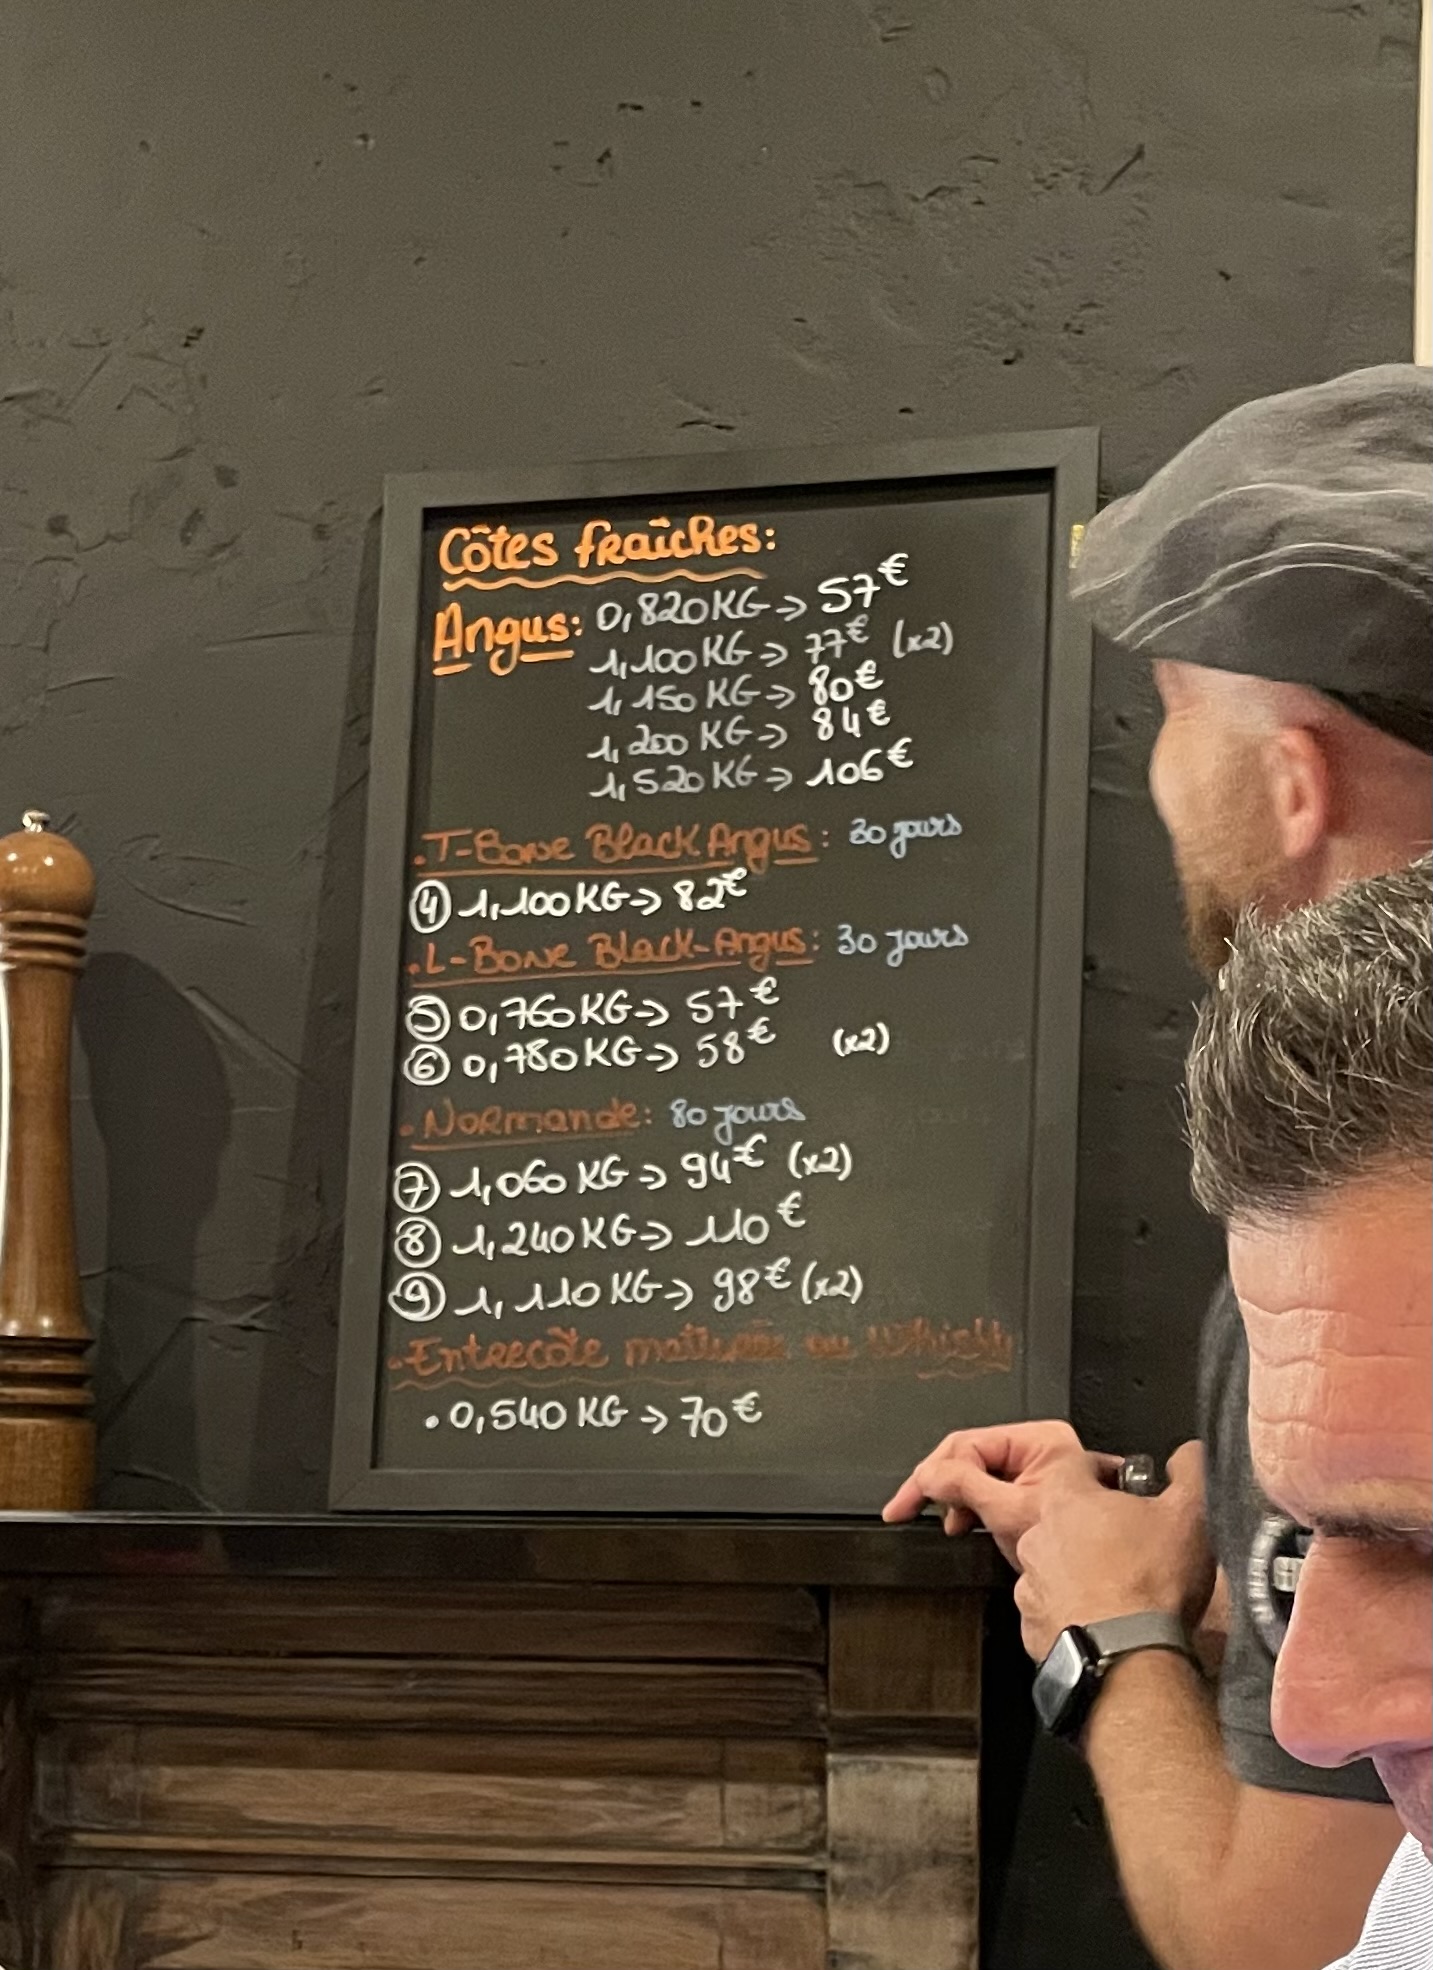 Côtes fraîches:
Angus: 0,820KG → 57€
1,100KG → 77€ (x2)
1,150 KG → 80€
1,200 KG → 84€
1,520 KG → 106€
.T-Bone Black Angus: 30 jours
④ 1,100KG → 82€
.L-Bone Black-Angus: 30 jours
⑤ 0,760KG → 57€
⑥ 0,780KG → 58€ (x2)
.Normande: 80 jours
⑦ 1,060 KG → 94€ (x2)
⑧ 1,240KG → 110€
⑨ 1,110KG → 98€ (x2)
.Entrecôte maturée au Whisky
. 0,540 KG → 70€